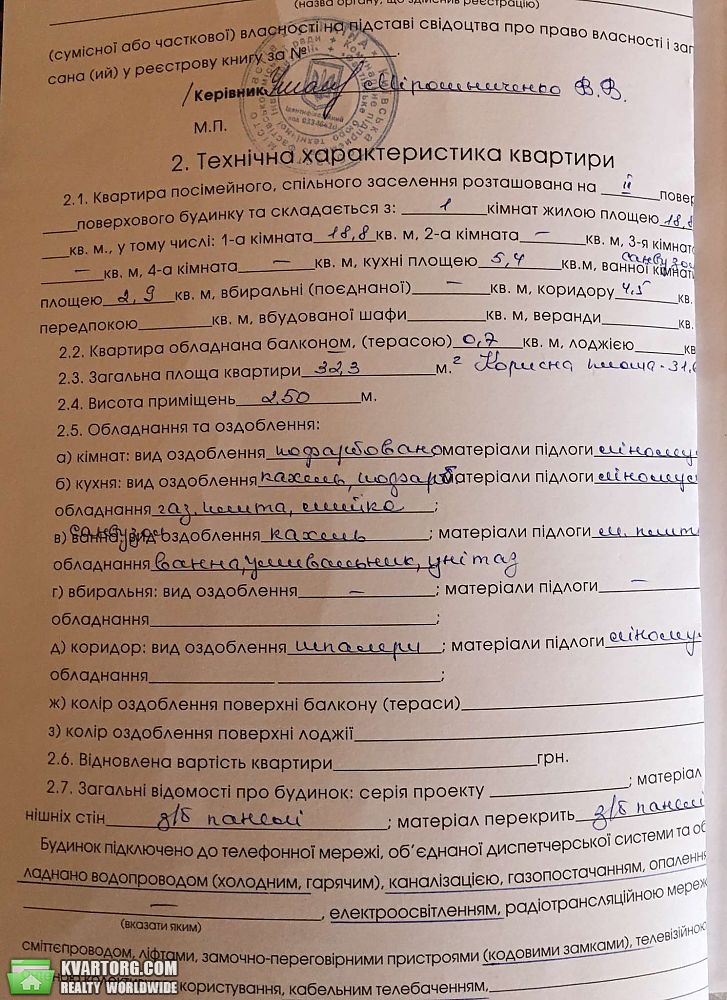 (назва органу, що здійснив реєстрацію)
(сумісної або часткової) власності на підставі свідоцтва про право власності і заг
сана (ий) у реєстрову книгу за №
/Керівник Мірошниченко В.В.
М.П.
2. Технічна характеристика квартири
2.1. Квартира посімейного, спільного заселення розташована на II повер
поверхового будинку та складається з: 1 кімнат жилою площею 18,8
кв. м., у тому числі: 1-а кімната 18,8 кв. м, 2-а кімната – кв. м, 3-я кімната
– кв. м, 4-а кімната – кв. м, кухні площею 5,4 кв.м, ванної кімнати санвузол
площею 2,9 кв. м, вбиральні (поєднаної) – кв. м, коридору 4,5 кв.
передпокою кв. м, вбудованої шафи кв. м, веранди кв.
2.2. Квартира обладнана балконом, (терасою) 0,7 кв. м, лоджією кв
2.3. Загальна площа квартири 32,3 м.² Корисна площа - 31,6
2.4. Висота приміщень 2,50 м.
2.5. Обладнання та оздоблення:
а) кімнат: вид оздоблення пофарбовано матеріали підлоги лінолеу
б) кухня: вид оздоблення кахель, пофарб матеріали підлоги лінолеу
обладнання газ. плита, мийка ;
в) ванна, вид оздоблення кахель ; матеріали підлоги м. плит
санвузол
обладнання ванна, умивальник, унітаз
г) вбиральня: вид оздоблення – ; матеріали підлоги –
обладнання ;
д) коридор: вид оздоблення шпалери ; матеріали підлоги лінолеу
обладнання ;
ж) колір оздоблення поверхні балкону (тераси)
з) колір оздоблення поверхні лоджії
2.6. Відновлена вартість квартири грн.
2.7. Загальні відомості про будинок: серія проекту ; матеріал
нішніх стін з/б панелі ; матеріал перекрить з/б панелі
Будинок підключено до телефонної мережі, об'єднаної диспетчерської системи та об
ладнано водопроводом (холодним, гарячим), каналізацією, газопостачанням, опалення
– , електроосвітленням, радіотрансляційною мереж
(вказати яким)
сміттєпроводом, ліфтами, замочно-переговорними пристроями (кодовими замками), телевізійною
користування, кабельним телебаченням,
KVARTORG.COM
REALTY WORLDWIDE